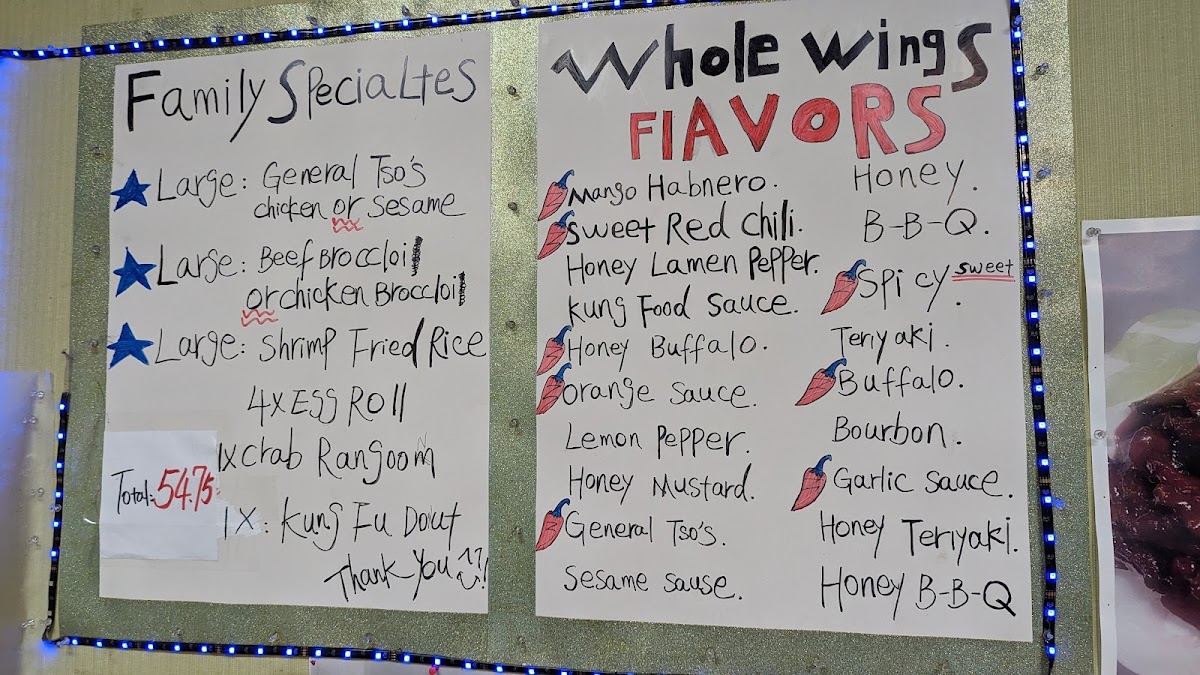 Family Specialtes
Large: General Tso's
chicken or Sesame
Large: Beef Broccloi
or chicken Broccloi
Large: Shrimp Fried Rice
4x Egg Roll
1x Crab Rangoom
Total: 54.75
1x: Kung Fu Dout
Thank You
Whole Wings
FlAVORS
Mango Habnero.
Sweet Red Chili.
Honey Lamen Pepper.
Kung Food Sauce.
Honey Buffalo.
Orange Sauce.
Lemon Pepper.
Honey Mustard.
General Tso's.
Sesame Sause.
Honey.
B-B-Q.
Spicy sweet.
Teriyaki.
Buffalo.
Bourbon.
Garlic Sauce.
Honey Teriyaki.
Honey B-B-Q